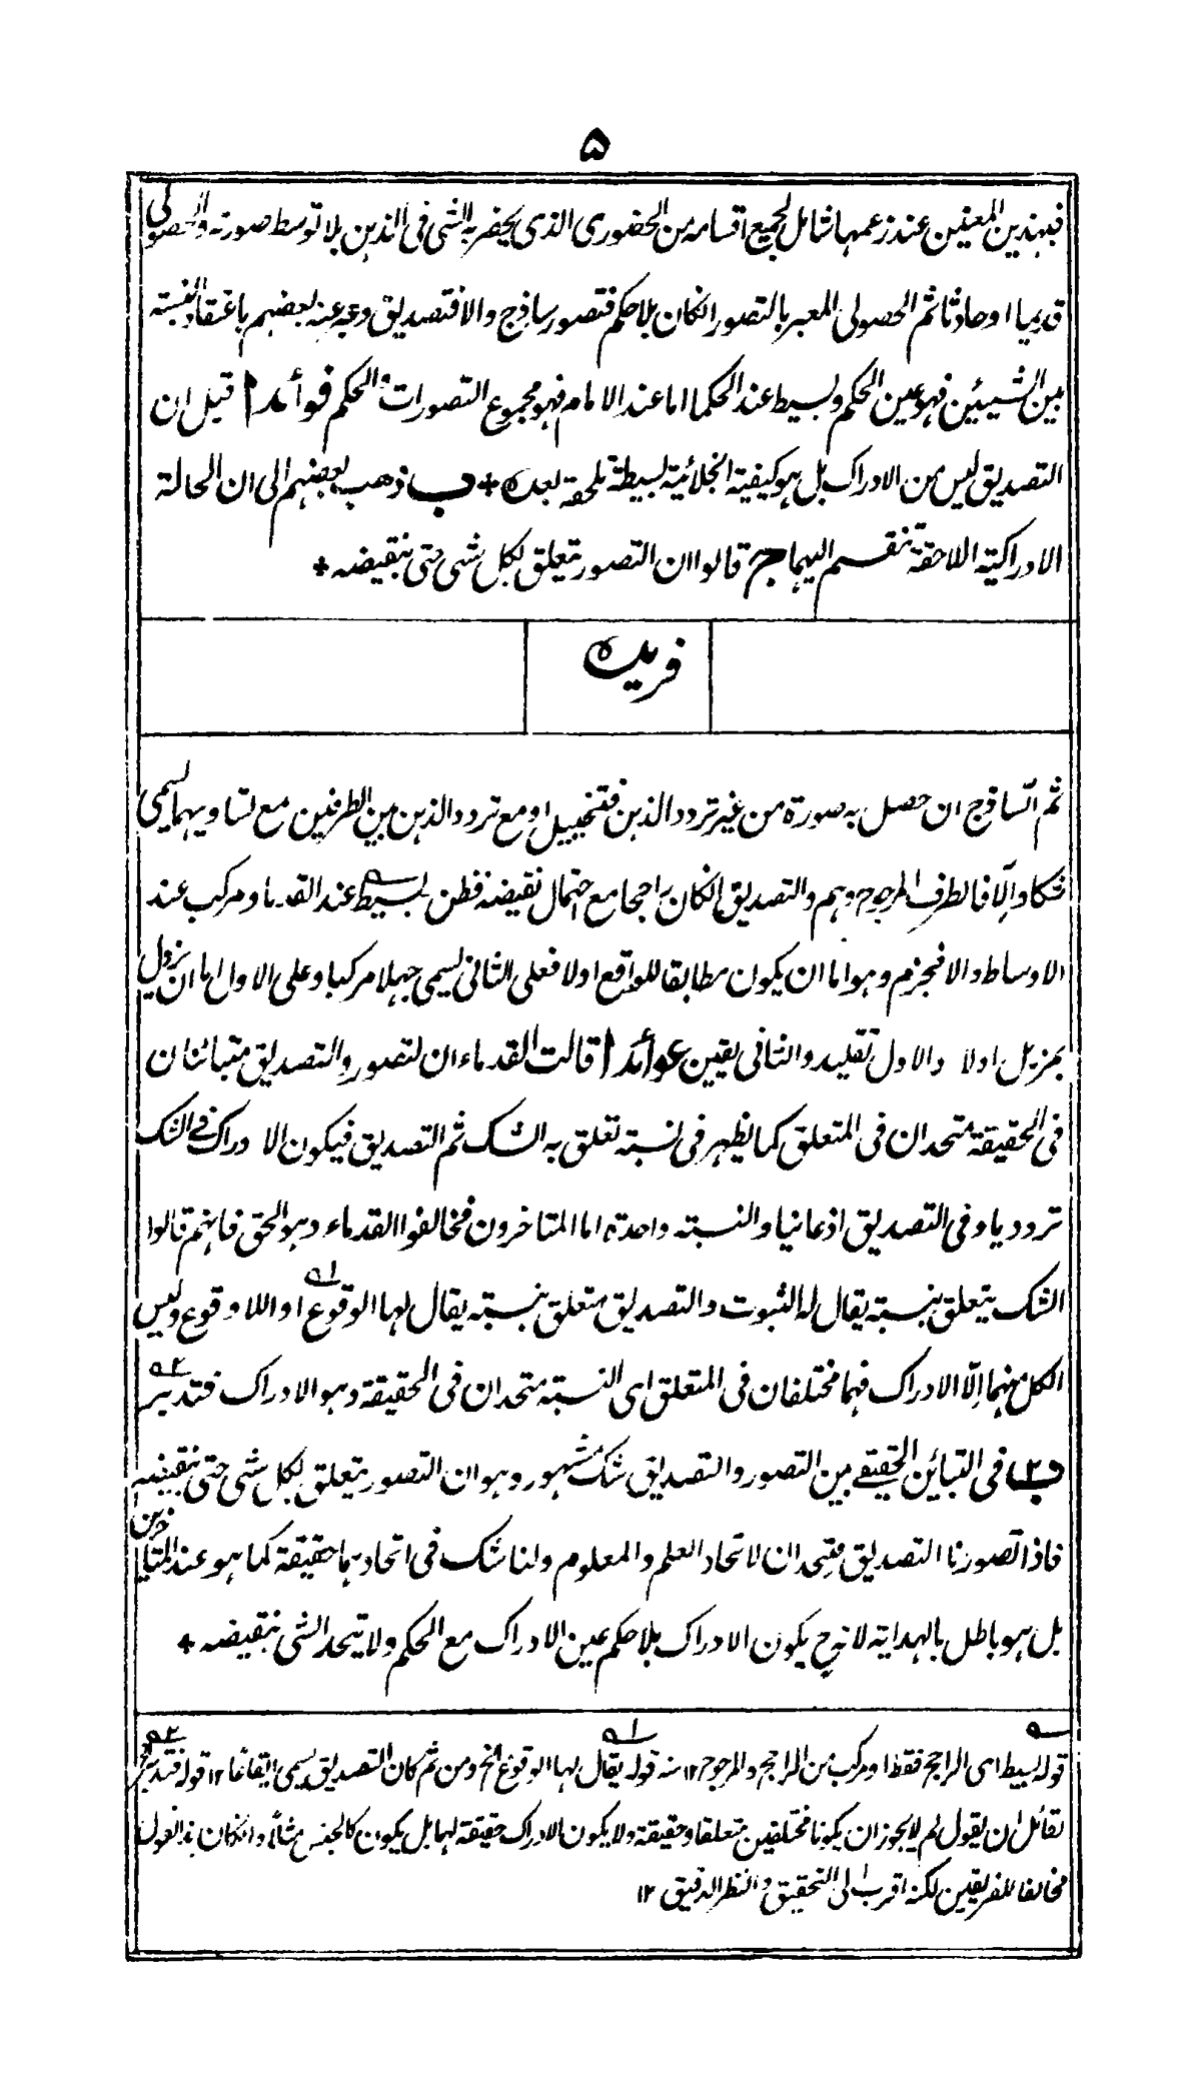 ۵
فبهذين المعنيين عند زعمهما شامل لجميع اقسامه من الحضورى الذى يحضر به الشئ فى الذهن بلا توسط صورته والحصولى
قديما او حادثا ثم الحصولى المعبر بالتصور انكان بلا حكم فتصور ساذج والا فتصديق وعبر عنه بعضهم باعتقاد النسبة
بين الشيئين فهو عين الحكم وبسيط عند الحكما اما عند الامام فهو مجموع التصورات والحكم فوائد ا قيل ان
التصديق ليس من الادراك بل هو كيفية انجلائية بسيطة تلحقه بعده + ب ذهب بعضهم الى ان الحالة
الادراكية اللاحقة تنقسم اليهما ج قالوا ان التصور يتعلق بكل شئ حتى بنقيضه +
فريده
ثم السّاذج ان حصل به صورة من غير تردد الذهن فتخييل او مع تردد الذهن بين الطرفين مع تساويهما يسمى
شكا والّا فالطرف المرجوح وهم والتصديق انكان راجحا مع احتمال نقيضه فظن بسيط عند القدما ومركب عند
الاوساط والا فجزم وهو اما ان يكون مطابقا للواقع اولا فعلى الثانى يسمى جهلا مركبا وعلى الاول اما ان يزول
بمزيل اولا والاول تقليد والثانى يقين عوائد ا قالت القدماء ان التصور والتصديق متبائنان
فى الحقيقة متحدان فى المتعلق كما يظهر فى نسبة تعلق به الشك ثم التصديق فيكون الادراك فى الشك
ترددياو فى التصديق اذعانيا والنسبة واحدة اما المتاخرون فخالفوا القدماء وهو الحق فانهم قالوا
الشك يتعلق بنسبة يقال له الثبوت والتصديق متعلق بنسبة يقال لها الوقوع ۱ه او اللاوقوع وليس
الكل منهما الّا الادراك فهما مختلفان فى المتعلق اى النسبة متحدان فى الحقيقة وهو الادراك فتدبر ۲ه
ب فى التبائن الحقيقے بين التصور والتصديق شك مشهور وهو ان التصور يتعلق بكل شئ حتى بنقيضه
فاذا تصورنا التصديق متحدان لاتحاد العلم والمعلوم ولنا شك فى اتحادهما حقيقة كما هو عند المتأخرين
بل هو باطل بالبداية لانه ح يكون الادراك بلا حكم عين الادراك مع الحكم ولا يتحد الشئ بنقيضه +
قوله بسيط اى الراجح فقط او مركب من الراجح والمرجوح ۱۲ منه ۱ه قوله يقال لها الوقوع الخ ومن ثم كان التصديق يسمى ايقاعًا ۱۲ ۲ه قوله فتدبر الخ
لقائل ان يقول لم لا يجوز ان يكونا مختلفين متعلقا وحقيقة ولا يكون الادراك حقيقة لهما بل يكون كالجنس مثلاً وانكان هذا القول
مخالفا للفريقين لكنه اقرب الى التحقيق والنظر الدقيق ۱۲